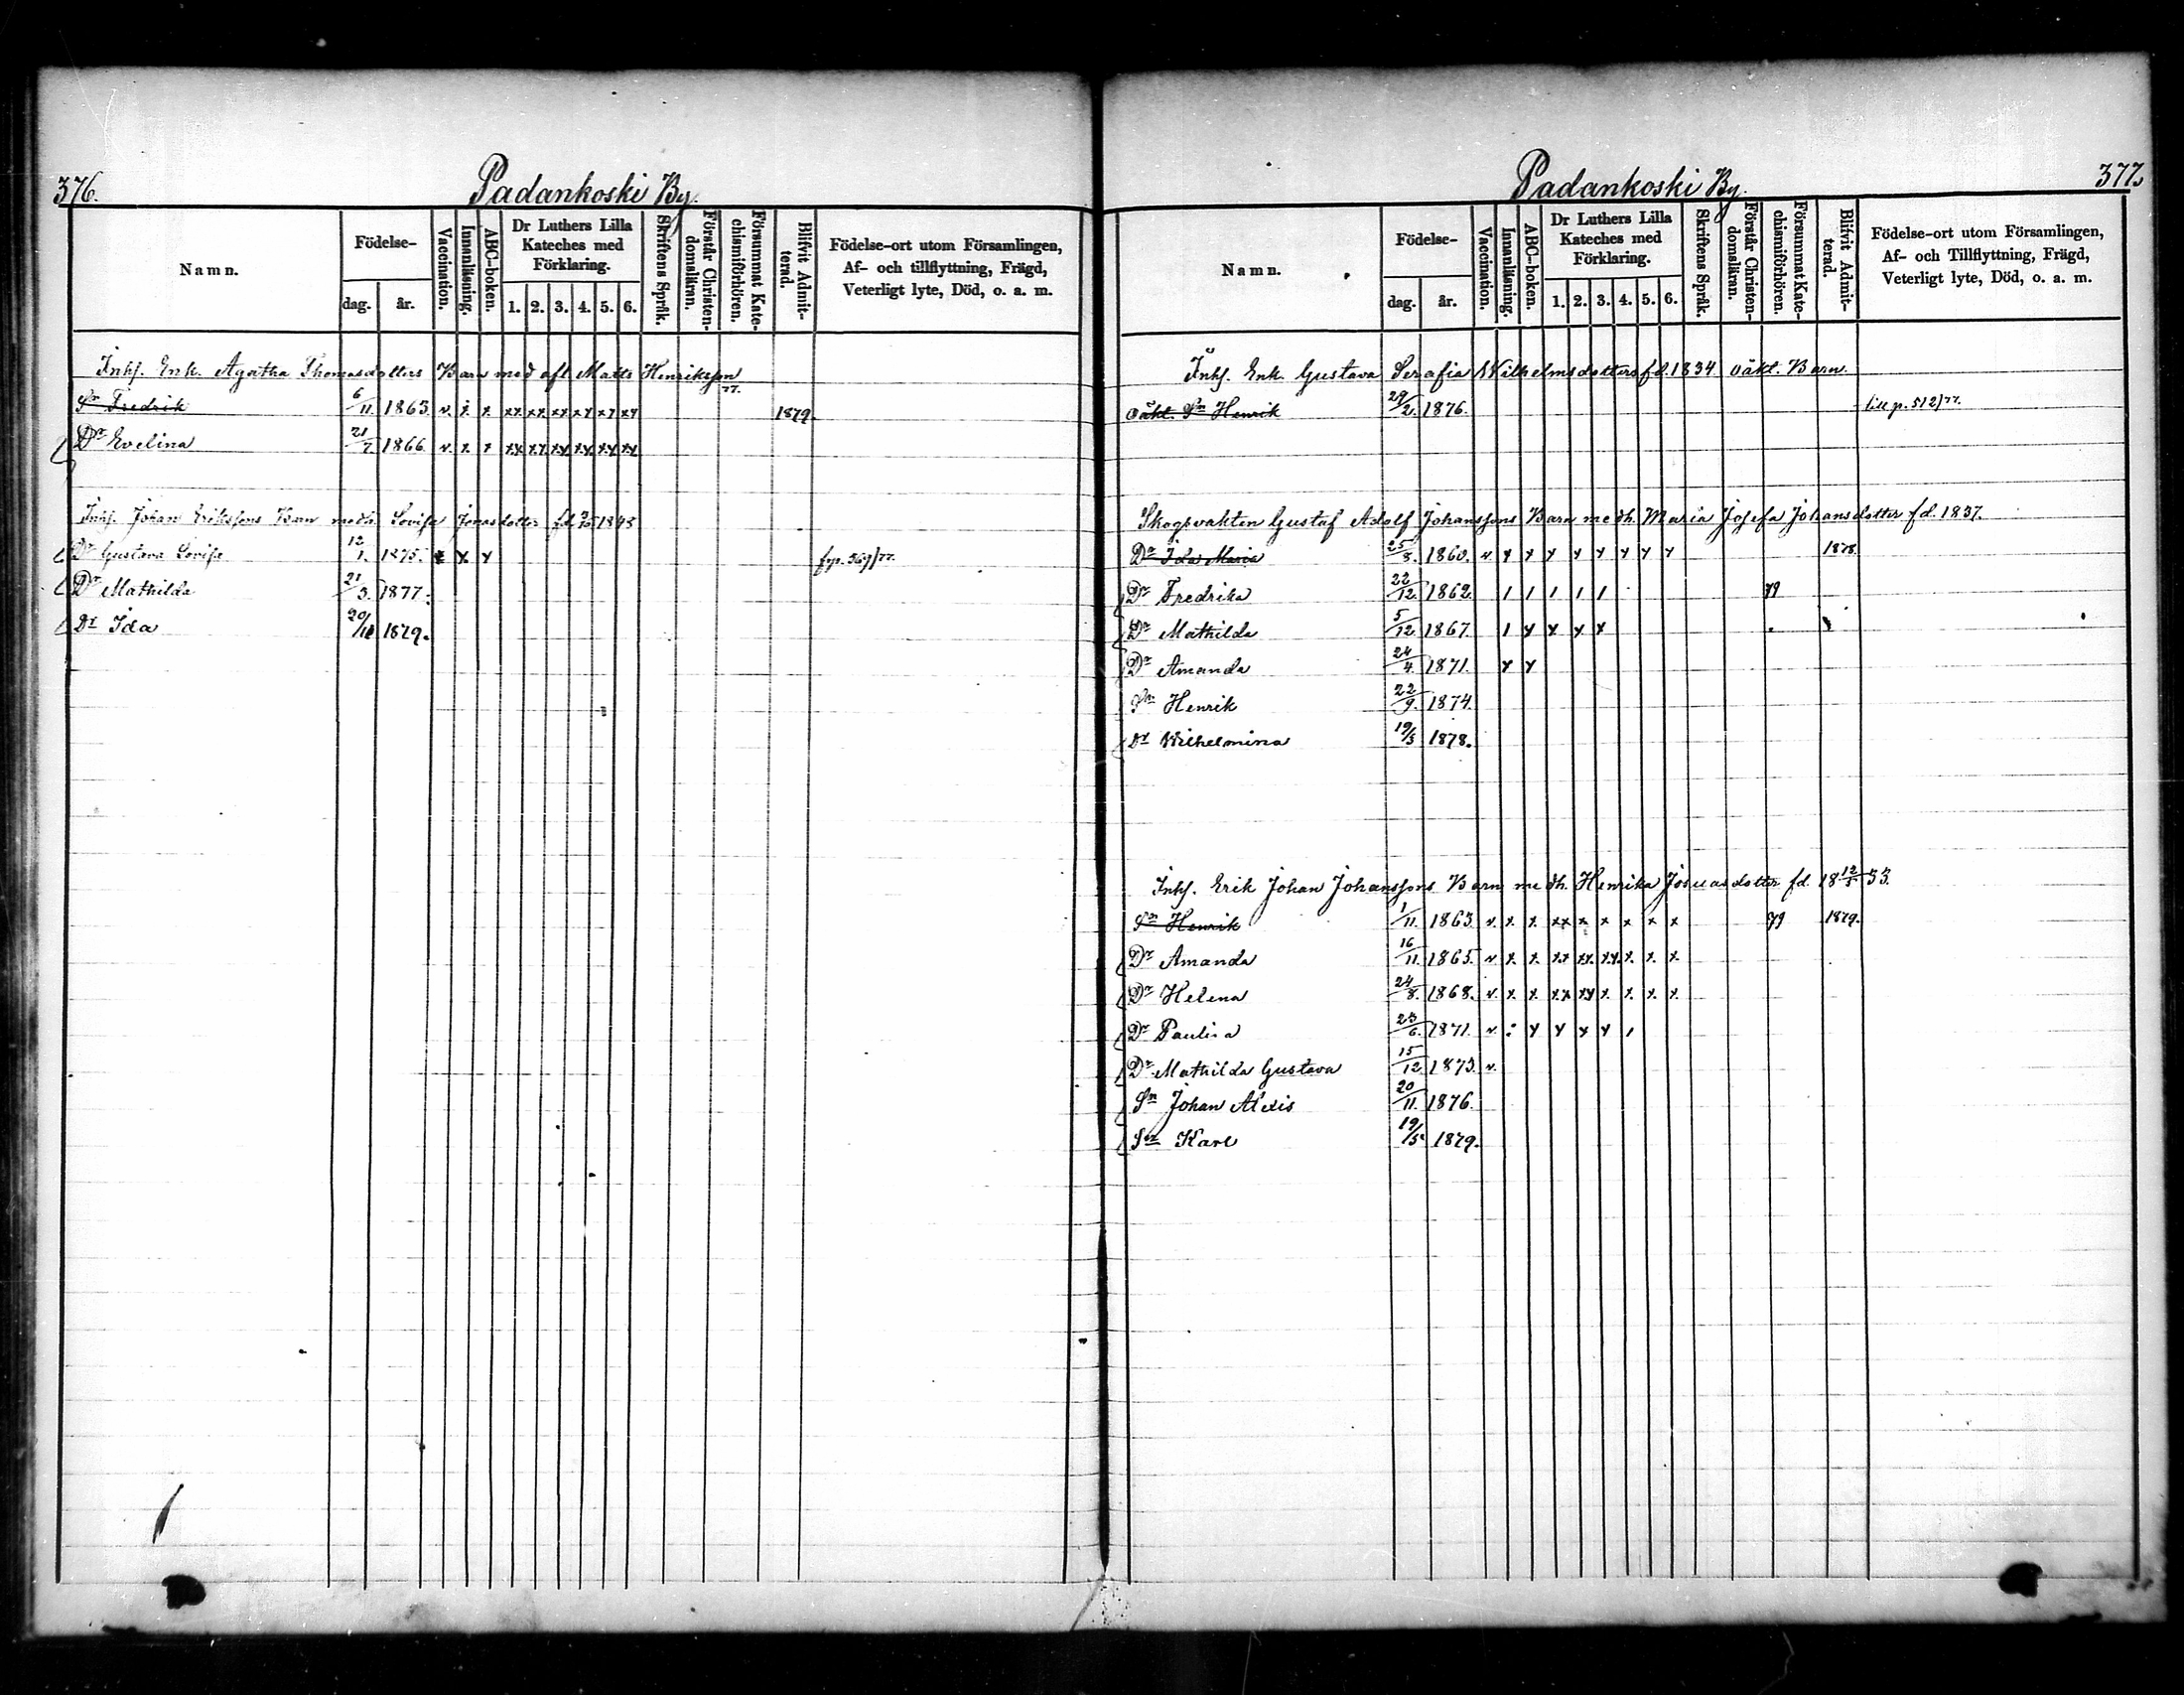 376.
Padankoski By.
Namn.
Födelse-
dag.
år.
Vaccination.
Innanläsning.
ABC-boken.
Dr Luthers Lilla Kateches med Förklaring.
1. 2. 3. 4. 5. 6.
Skriftens Språk.
Förstår Christendomsläran.
Försummat Katechismiförhören.
Blifvit Admitterad.
Födelse-ort utom Församlingen,
Af- och tillflyttning, Frägd,
Veterligt lyte, Död, o. a. m.
Inhs. Enk. Agatha Thomasdotters Barn med afl. Matts Henriksson
Sn Fredrik 6/11 1863. v. x x xx xx xx xx xx xx 77. 1879.
Dr Evelina 21/7. 1866 v. x. x xx xx xx xx xx xx
Inhs. Johan Erikssons Barn med h. Lovisa Jonasdotter fd. 1843
Dr Gustava Lovisa 12/1. 1875. x x x fr. p. 369/77.
Dr Mathilda 21/3. 1877.
Dr Ida 20/10 1879.
377.
Padankoski By.
Namn.
Födelse-
dag.
år.
Vaccination.
Innanläsning.
ABC-boken.
Dr Luthers Lilla Kateches med Förklaring.
1. 2. 3. 4. 5. 6.
Skriftens Språk.
Förstår Christendomsläran.
Försummat Katechismiförhören.
Blifvit Admitterad.
Födelse-ort utom Församlingen,
Af- och Tillflyttning, Frägd,
Veterligt lyte, Död, o. a. m.
Inhs. Enk. Gustava Serafia Wilhelmsdotters fd. 1834 oäkt. Barn.
oäkt. Sn Henrik 29/2. 1876. till p. 512/77.
Skogsvakten Gustaf Adolf Johanssons Barn med h. Maria Josefa Johansdotter fd. 1837.
Dr Ida Maria 25/8. 1860. v x x x x x x x x 1878.
Dr Fredrika 22/12. 1862. 1 1 1 1 1 79
Dr Mathilda 5/12 1867. 1 x x x x
Dr Amanda 24/4. 1871. x x
Sn Henrik 22/9. 1874.
Dr Wilhelmina 19/5 1878.
Inhs. Erik Johan Johanssons Barn med h. Henrika Josuasdotter fd. 18 12/5 33.
Sn Henrik 1/11. 1863. v. x. x. xx x x x x x 79 1879.
Dr Amanda 16/11. 1865. v x. x. xx xx. xx. x. x. x.
Dr Helena 24/8. 1868. v. x. x. xx xx x. x. x. x.
Dr Paulina 23/6. 1871. v. : x x x x ,
Dr Mathilda Gustava 15/12 1873. v.
Sn Johan Alexis 20/11. 1876.
Sn Karl 19/5 1879.